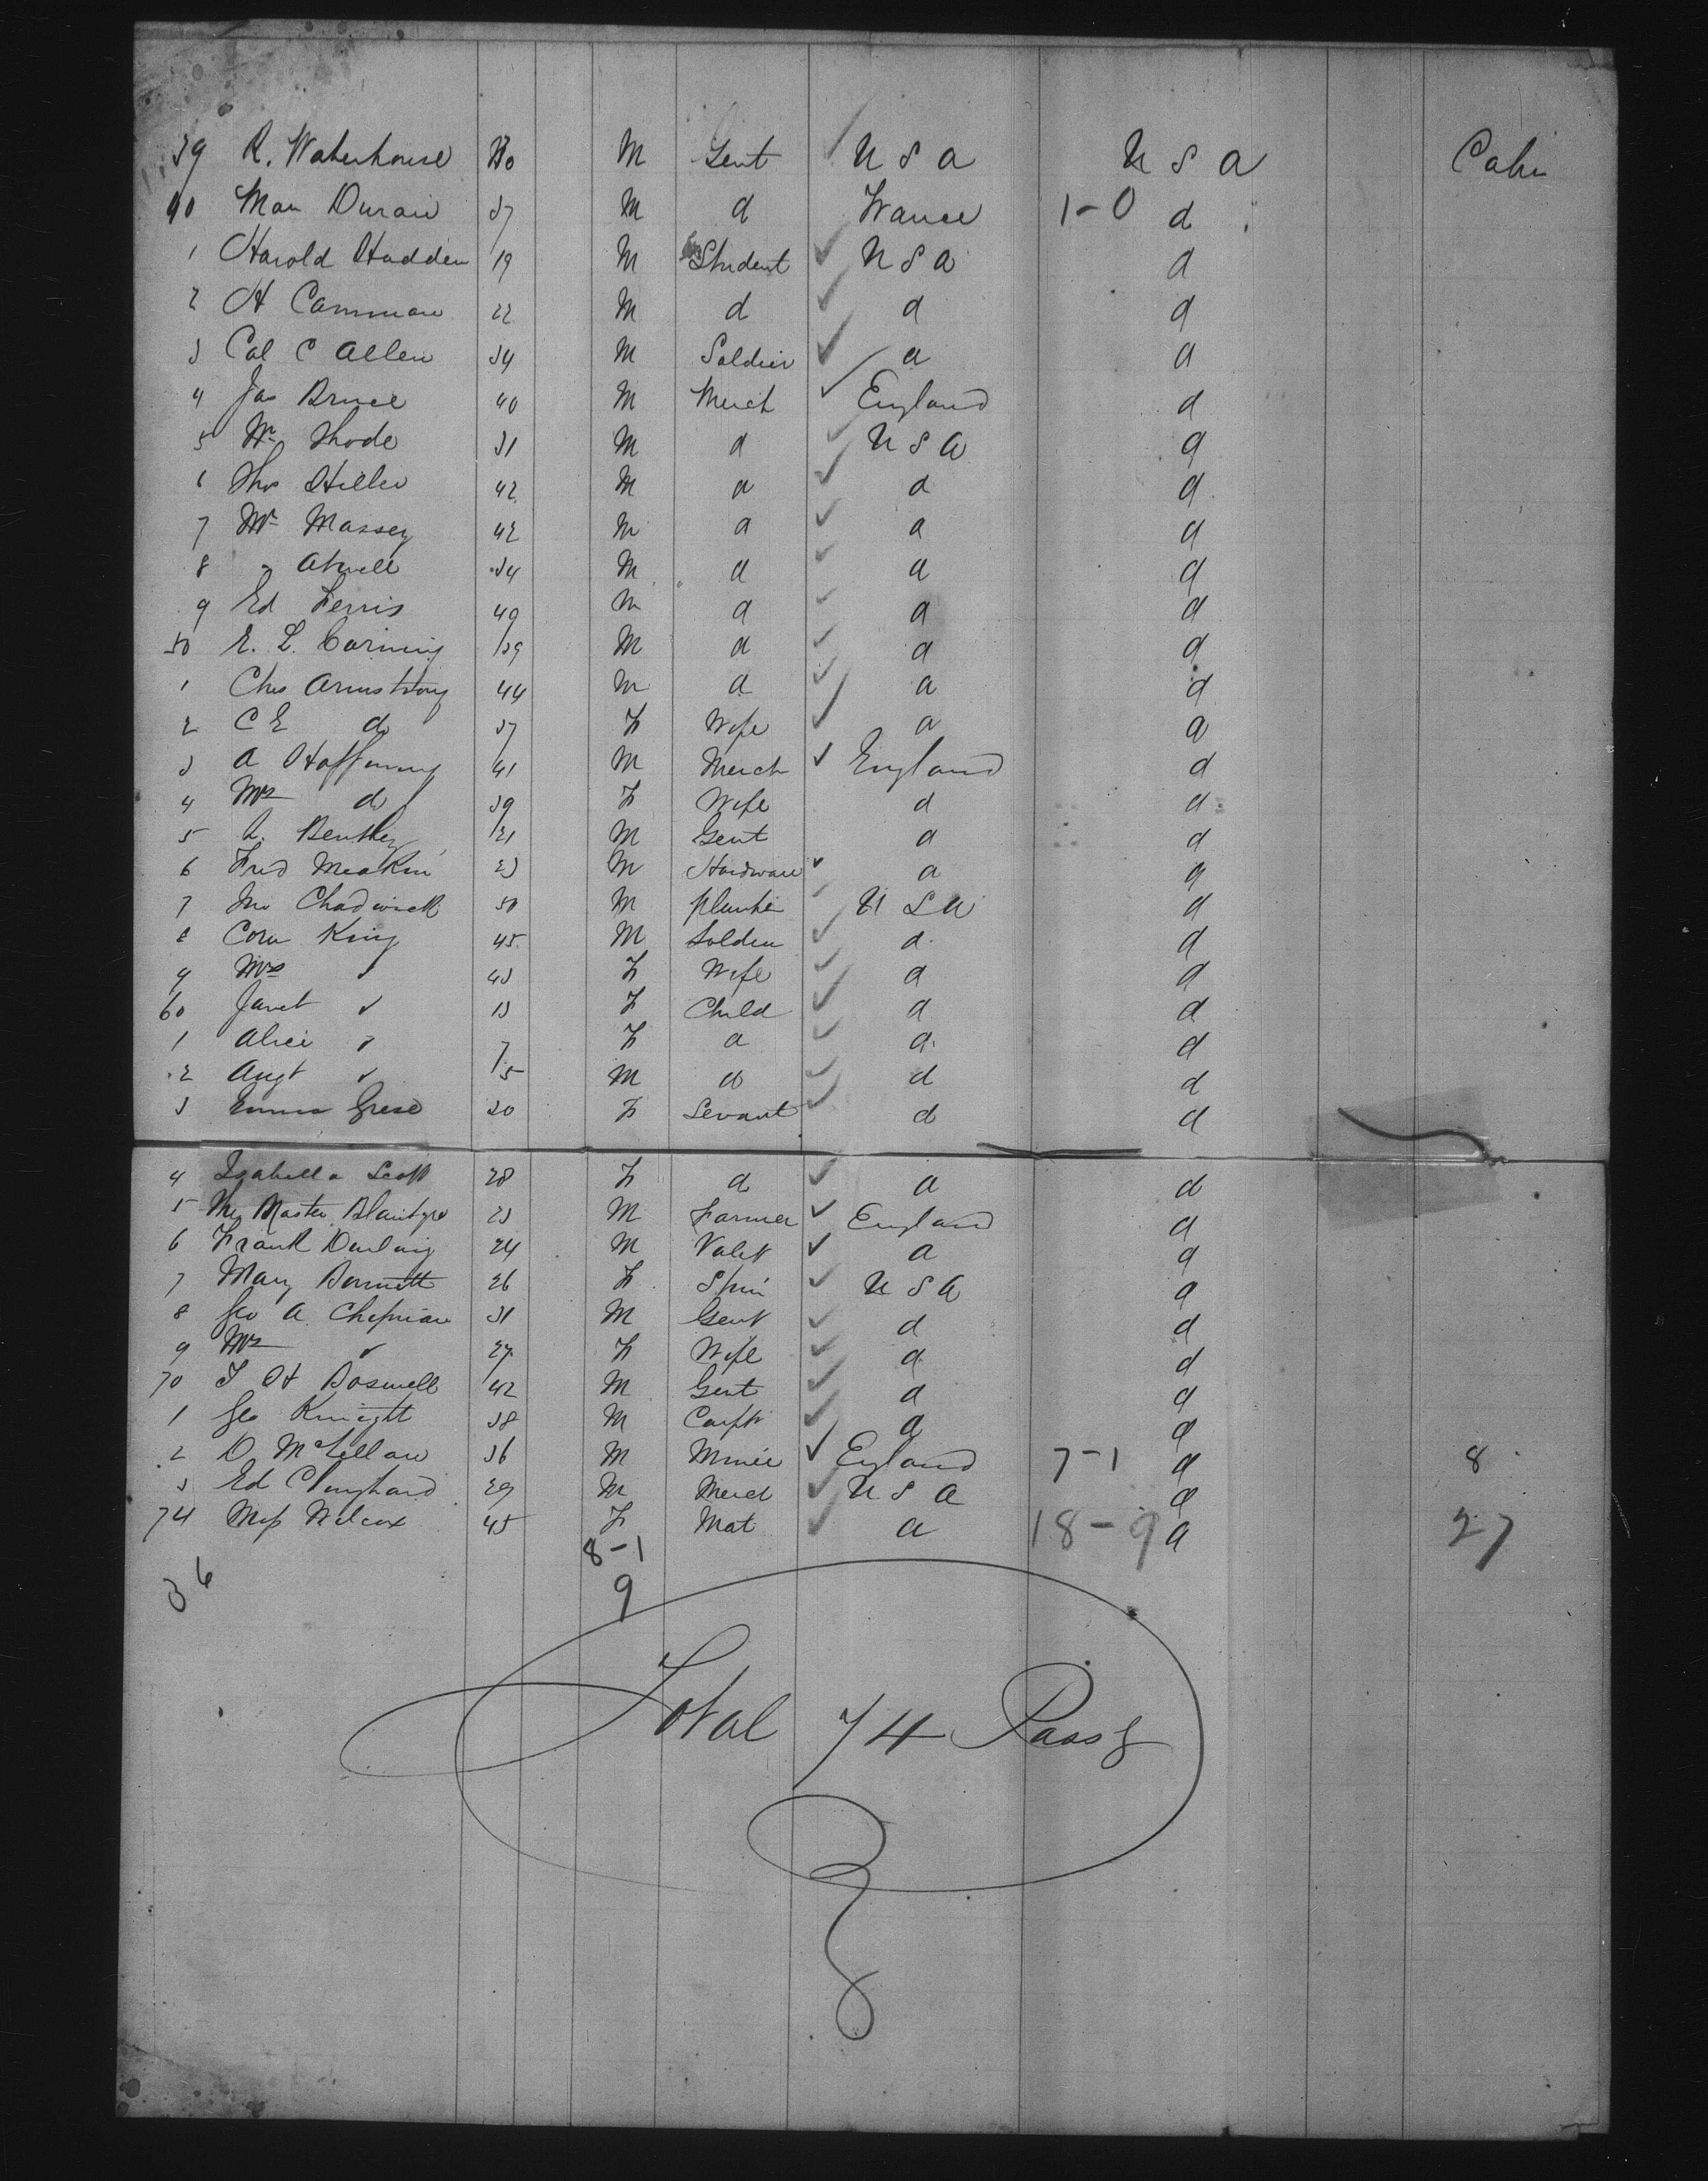 39 R. Waterhouse M Gent U S A U S A Cabin
40 37 M d France 1-0 d
1 Harold Hadden 19 M Student U S A d
2 H Camman 22 M d d d
3 Col C Allen 34 M Soldier d d
4 Jas Bruce 40 M Merch England d
5 Wm Thode 31 M d U S A d
6 Thos 42 M d d d
7 Mr Massey 42 M d d d
8 " Atwell 34 M d d d
9 Ed Ferris 49 M d d d
50 E. L. Corning 39 M d d d
1 Chas Armstrong 44 M d d d
2 C E do 37 F Wife d d
3 A Hoffnung 41 M Merch England d
4 Mrs do 39 F Wife d d
5 Bentley 21 M Gent d d
6 Fred Meakin 23 M Hardware d d
7 Jno Chadwick 50 M planter U S A d
8 Corn King 45 M Soldier d d
9 Mrs " 43 F Wife d d
60 Janet " 13 F Child d d
1 Alice " 7 F d d d
2 Augt " 5 M do d d
3 Emma 30 F Servant do d
4 Isabella Scott 28 F d d do
5 Master Blantyre 23 M Farmer England d
6 Frank Darling 24 M Valet d d
7 Mary Bennett 26 F Spin U S A d
8 Geo A. Chapman 31 M Gent d d
9 Mrs " 27 F Wife d d
70 H Boswell 42 M Gent d d
1 Geo Knight 38 M Carptr d d
2 D McLellan 36 M Miner England 7-1 d 8
3 Ed 29 M Merch U S A d
74 Miss Wilcox 45 F Mat d 18-9 d 27
8-1
36 9
Total 74 Passg